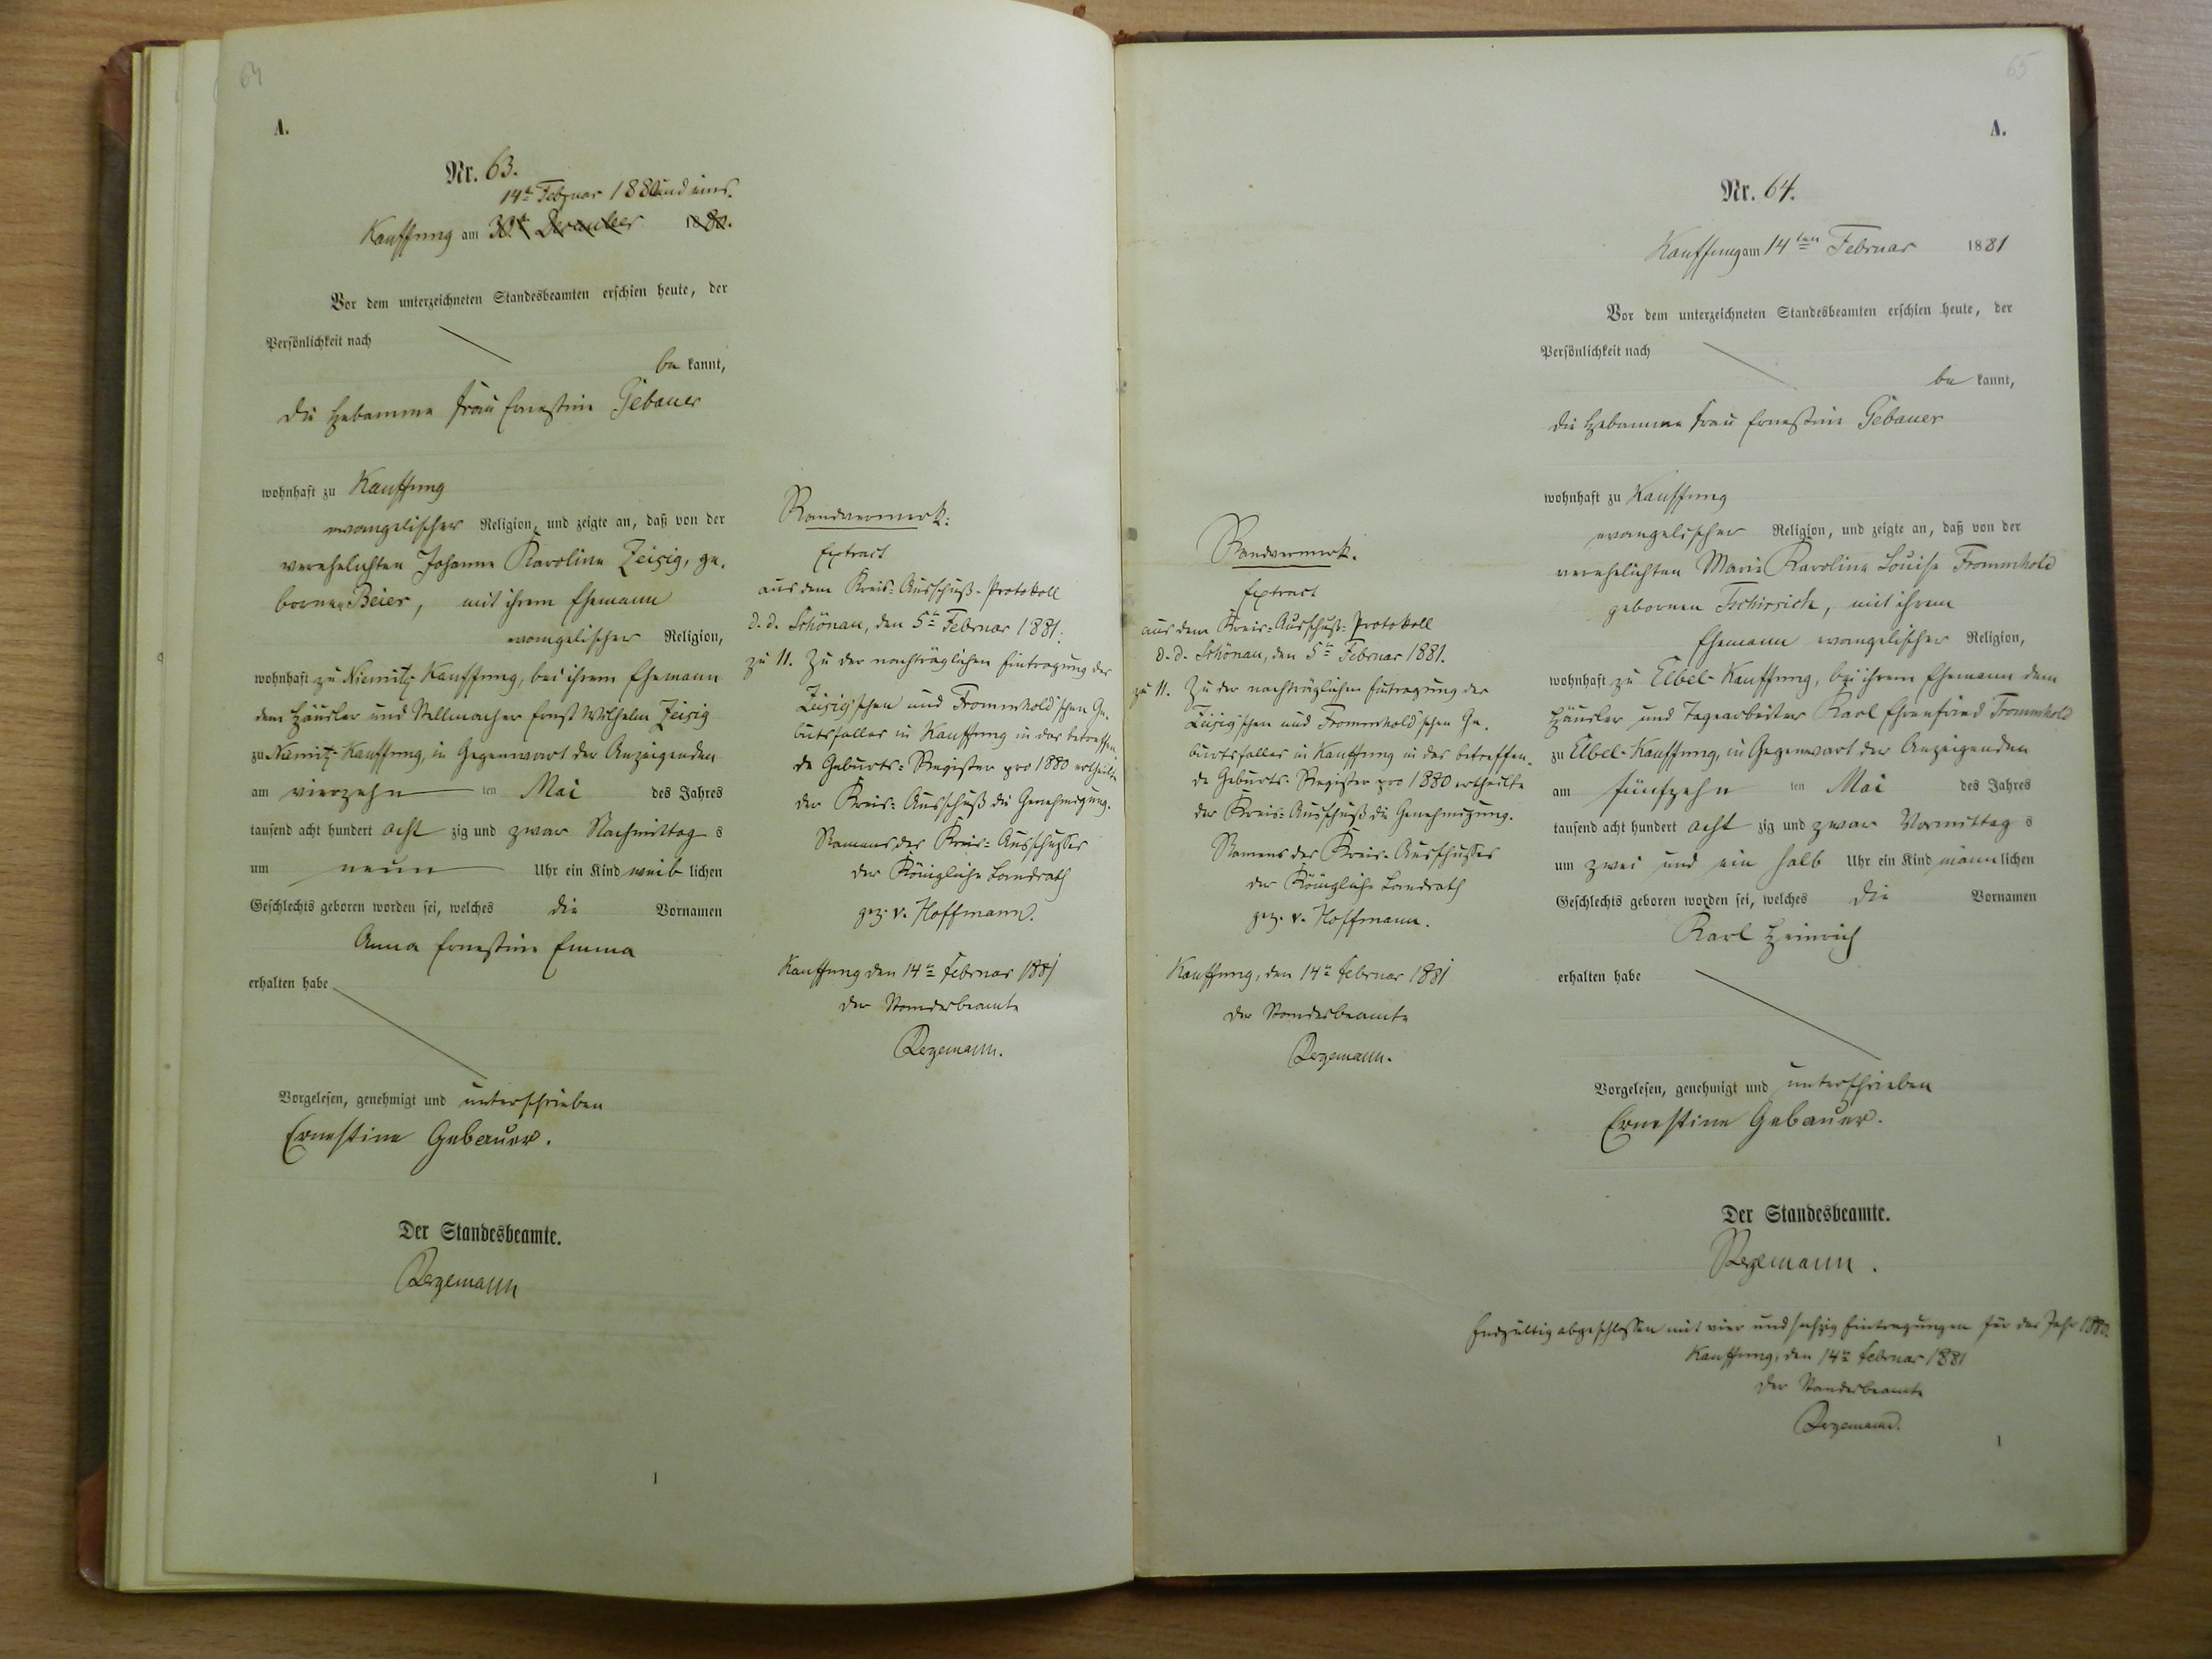 64
A.
Nr. 63.
14te Februar 1880 und eins.
Kauffung am 30te December 1880.
Vor dem unterzeichneten Standesbeamten erschien heute, der
Persönlichkeit nach
be kannt,
die Hebamme Frau Ernestine Gebauer
wohnhaft zu Kauffung
evangelischer Religion, und zeigte an, daß von der
verehelichten Johanne Karoline Zeisig, ge-
borne Beier, mit ihrem Ehemann
evangelischer Religion,
wohnhaft zu Niemitz-Kauffung, bei ihrem Ehemann
dem Häusler und Stellmacher Ernst Wilhelm Zeisig
zu Niemitz-Kauffung, in Gegenwart der Anzeigenden
am vierzehn ten Mai des Jahres
tausend acht hundert acht zig und zwar Nachmittag s
um neun Uhr ein Kind weib lichen
Geschlechts geboren worden sei, welches die Vornamen
Anna Ernestine Emma
erhalten habe
Vorgelesen, genehmigt und unterschrieben
Ernestine Gebauer.
Der Standesbeamte.
Regemann
1
Randvermerk:
Extract
aus dem Kreis-Ausschuß-Protokoll
d. d. Schönau, den 5te Februar 1881.
zu 11. Zu der nachträglichen Eintragung der
Zeisig'schen und Frommhold'schen Ge-
burtsfalles in Kauffung in das betreffen
de Geburts-Register pro 1880 ertheilte
der Kreis-Ausschuß die Genehmigung.
Namens des Kreis-Ausschusses
der Königliche Landrath
gez. v. Hoffmann.
Kauffung den 14te Februar 1881
der Standesbeamte
Regemann.
65
A.
Nr. 64.
Kauffung am 14ten Februar 1881
Vor dem unterzeichneten Standesbeamten erschien heute, der
Persönlichkeit nach
be kannt,
die Hebamme Frau Ernestine Gebauer
wohnhaft zu Kauffung
evangelischer Religion, und zeigte an, daß von der
verehelichten Marie Karoline Louise Frommhold
gebornen Tschirsich, mit ihrem
Ehemann evangelischer Religion,
wohnhaft zu Elbel-Kauffung, bei ihrem Ehemann dem
Häusler und Tagearbeiter Karl Ehrenfried Frommhold
zu Elbel-Kauffung, in Gegenwart der Anzeigenden
am fünfzehn ten Mai des Jahres
tausend acht hundert acht zig und zwar Vormittag s
um zwei und ein halb Uhr ein Kind männ lichen
Geschlechts geboren worden sei, welches die Vornamen
Karl Heinrich
erhalten habe
Vorgelesen, genehmigt und unterschrieben
Ernestine Gebauer.
Der Standesbeamte.
Regemann.
Endgültig abgeschlossen mit vier und sechzig Eintragungen für das Jahr 1880.
Kauffung, den 14te Februar 1881
der Standesbeamte
Regemann.
1
Randvermerk.
Extract
aus dem Kreis-Ausschuß-Protokoll
d. d. Schönau, den 5te Februar 1881.
zu 11. Zu der nachträglichen Eintragung der
Zeisig'schen und Frommhold'schen Ge-
burtsfalles in Kauffung in das betreffen-
de Geburts-Register pro 1880 ertheilte
der Kreis-Ausschuß die Genehmigung.
Namens des Kreis-Ausschusses
der Königliche Landrath
gez. v. Hoffmann.
Kauffung, den 14te Februar 1881
der Standesbeamte
Regemann.